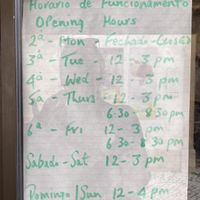 Horario de Funcionamento
Opening Hours
2ª - Mon Fechado - Closed
3ª - Tue - 12 - 3 pm
4ª - Wed - 12 - 3 pm
5ª - Thurs 12 - 3 pm
6.30 - 8.30 pm
6ª - Fri 12 - 3 pm
6.30 - 8.30 pm
Sabado - Sat 12 - 3 pm
Domingo / Sun 12 - 4 pm